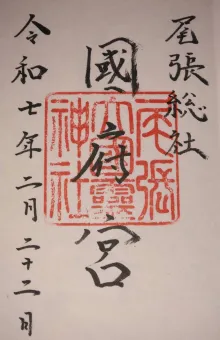 尾張総社
國府宮
尾張
大國靈
神社
令和七年二月二十二日